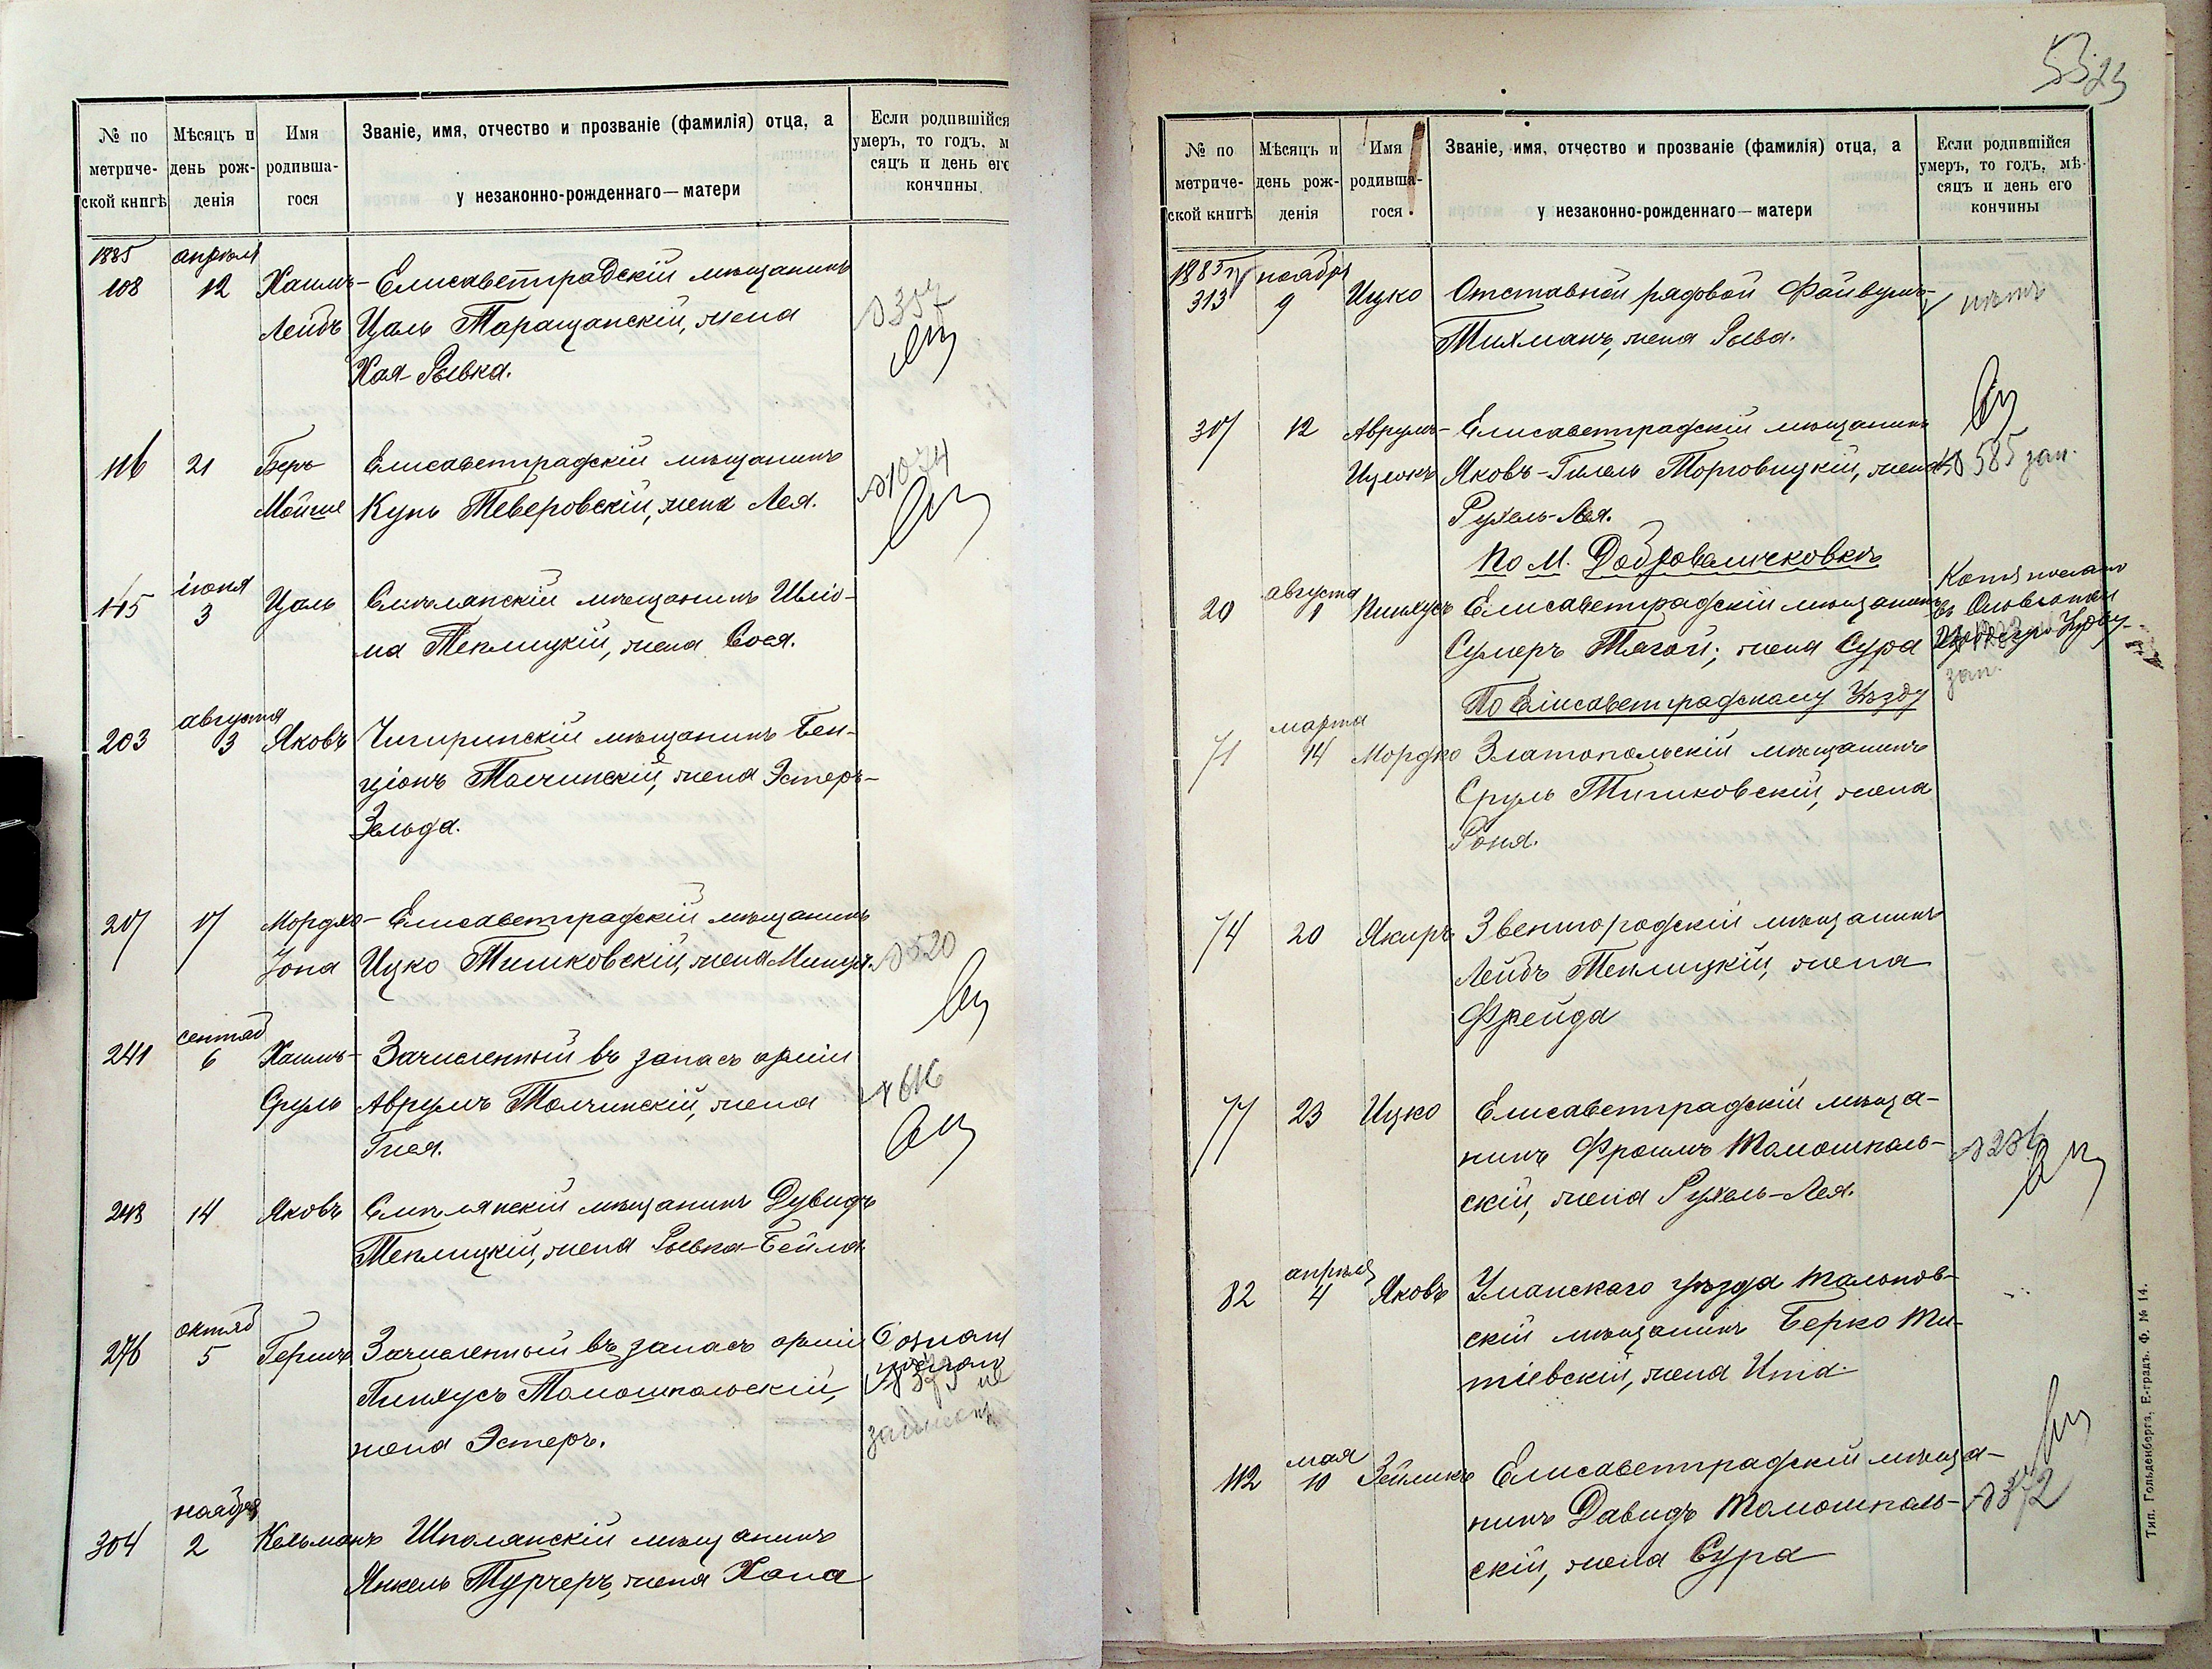 № по метриче- ской книгѣ
Мѣсяцъ и день рож- денія
Имя родивша- гося
Званіе, имя, отчество и прозваніе (фамилія) отца, а у незаконно-рожденнаго—матери
Если родившійся умеръ, то годъ, м сяцъ и день его кончины
1885 апрѣля
108 12 Хаимъ- Елисаветградскій мѣщанинъ
Лейбъ Цаль Таращанскій, жена
Хая-Рывка.
№ 357
116 21 Беръ Елисаветградскій мѣщанинъ
Мойше Кунь Теверовскій, жена Лея.
№ 1074
іюня
145 3 Цаль Смѣлянскій мѣщанинъ Шліо-
ма Теплицкій, жена Сося.
августа
203 3 Яковъ Чигиринскій мѣщанинъ Бен-
ціонъ Толчинскій, жена Эстеръ-
Зельда.
207 17 Мордко- Елисаветградскій мѣщанинъ
Іона Ицко Тишковскій, жена Минця.
№ 520
сентяб
241 6 Хаимъ- Зачисленный въ запасъ арміи
Сруль Аврумъ Толчинскій, жена
Гися.
№ 616
248 14 Яковъ Смѣлянскій мѣщанинъ Дувидъ
Теплицкій, жена Рывка-Бейла.
октяб
276 5 Гершъ Зачисленный въ запасъ арміи
Пинхусъ Томошпольскій,
жена Эстеръ.
ноября
304 2 Кельманъ Шполянскій мѣщанинъ
Янкель Турчеръ, жена Хана
5323
№ по метриче- ской книгѣ
Мѣсяцъ и день рож- денія
Имя родивша- гося
Званіе, имя, отчество и прозваніе (фамилія) отца, а у незаконно-рожденнаго—матери
Если родившійся умеръ, то годъ, мѣ- сяцъ и день его кончины
1885 г ноября
313 9 Ицко Отставной рядовой Файвушъ-
Тихманъ, жена Рыва.
нѣтъ
317 12 Аврумъ- Елисаветградскій мѣщанинъ
Ицекъ Яковъ-Гилель Торговицкій, жена
Рухель-Лея.
№ 585 зап.
По М. Добровеличковкѣ
августа
20 1 Пинхусъ Елисаветградскій мѣщанинъ
Сумеръ Тягой; жена Сура
зап.
По Елисаветградскому Уѣзду
марта
71 14 Мордко Златопольскій мѣщанинъ
Сруль Тишковскій, жена
Роня.
74 20 Якиръ Звенигородскій мѣщанинъ
Лейбъ Теплицкій, жена
Фрейда
77 23 Ицко Елисаветградскій мѣща-
нинъ Фроимъ Томошполь-
скій, жена Рухель-Лея.
№ 236
апрѣля
82 4 Яковъ Уманскаго уѣзда Тальнов-
скій мѣщанинъ Берко Ти-
тіевскій, жена Ита
мая
112 10 Зейликъ Елисаветградскій мѣща-
нинъ Давидъ Томошполь-
скій, жена Сура
№ 372
Тип. Гольденберга, Е-градъ. Ф. № 14.